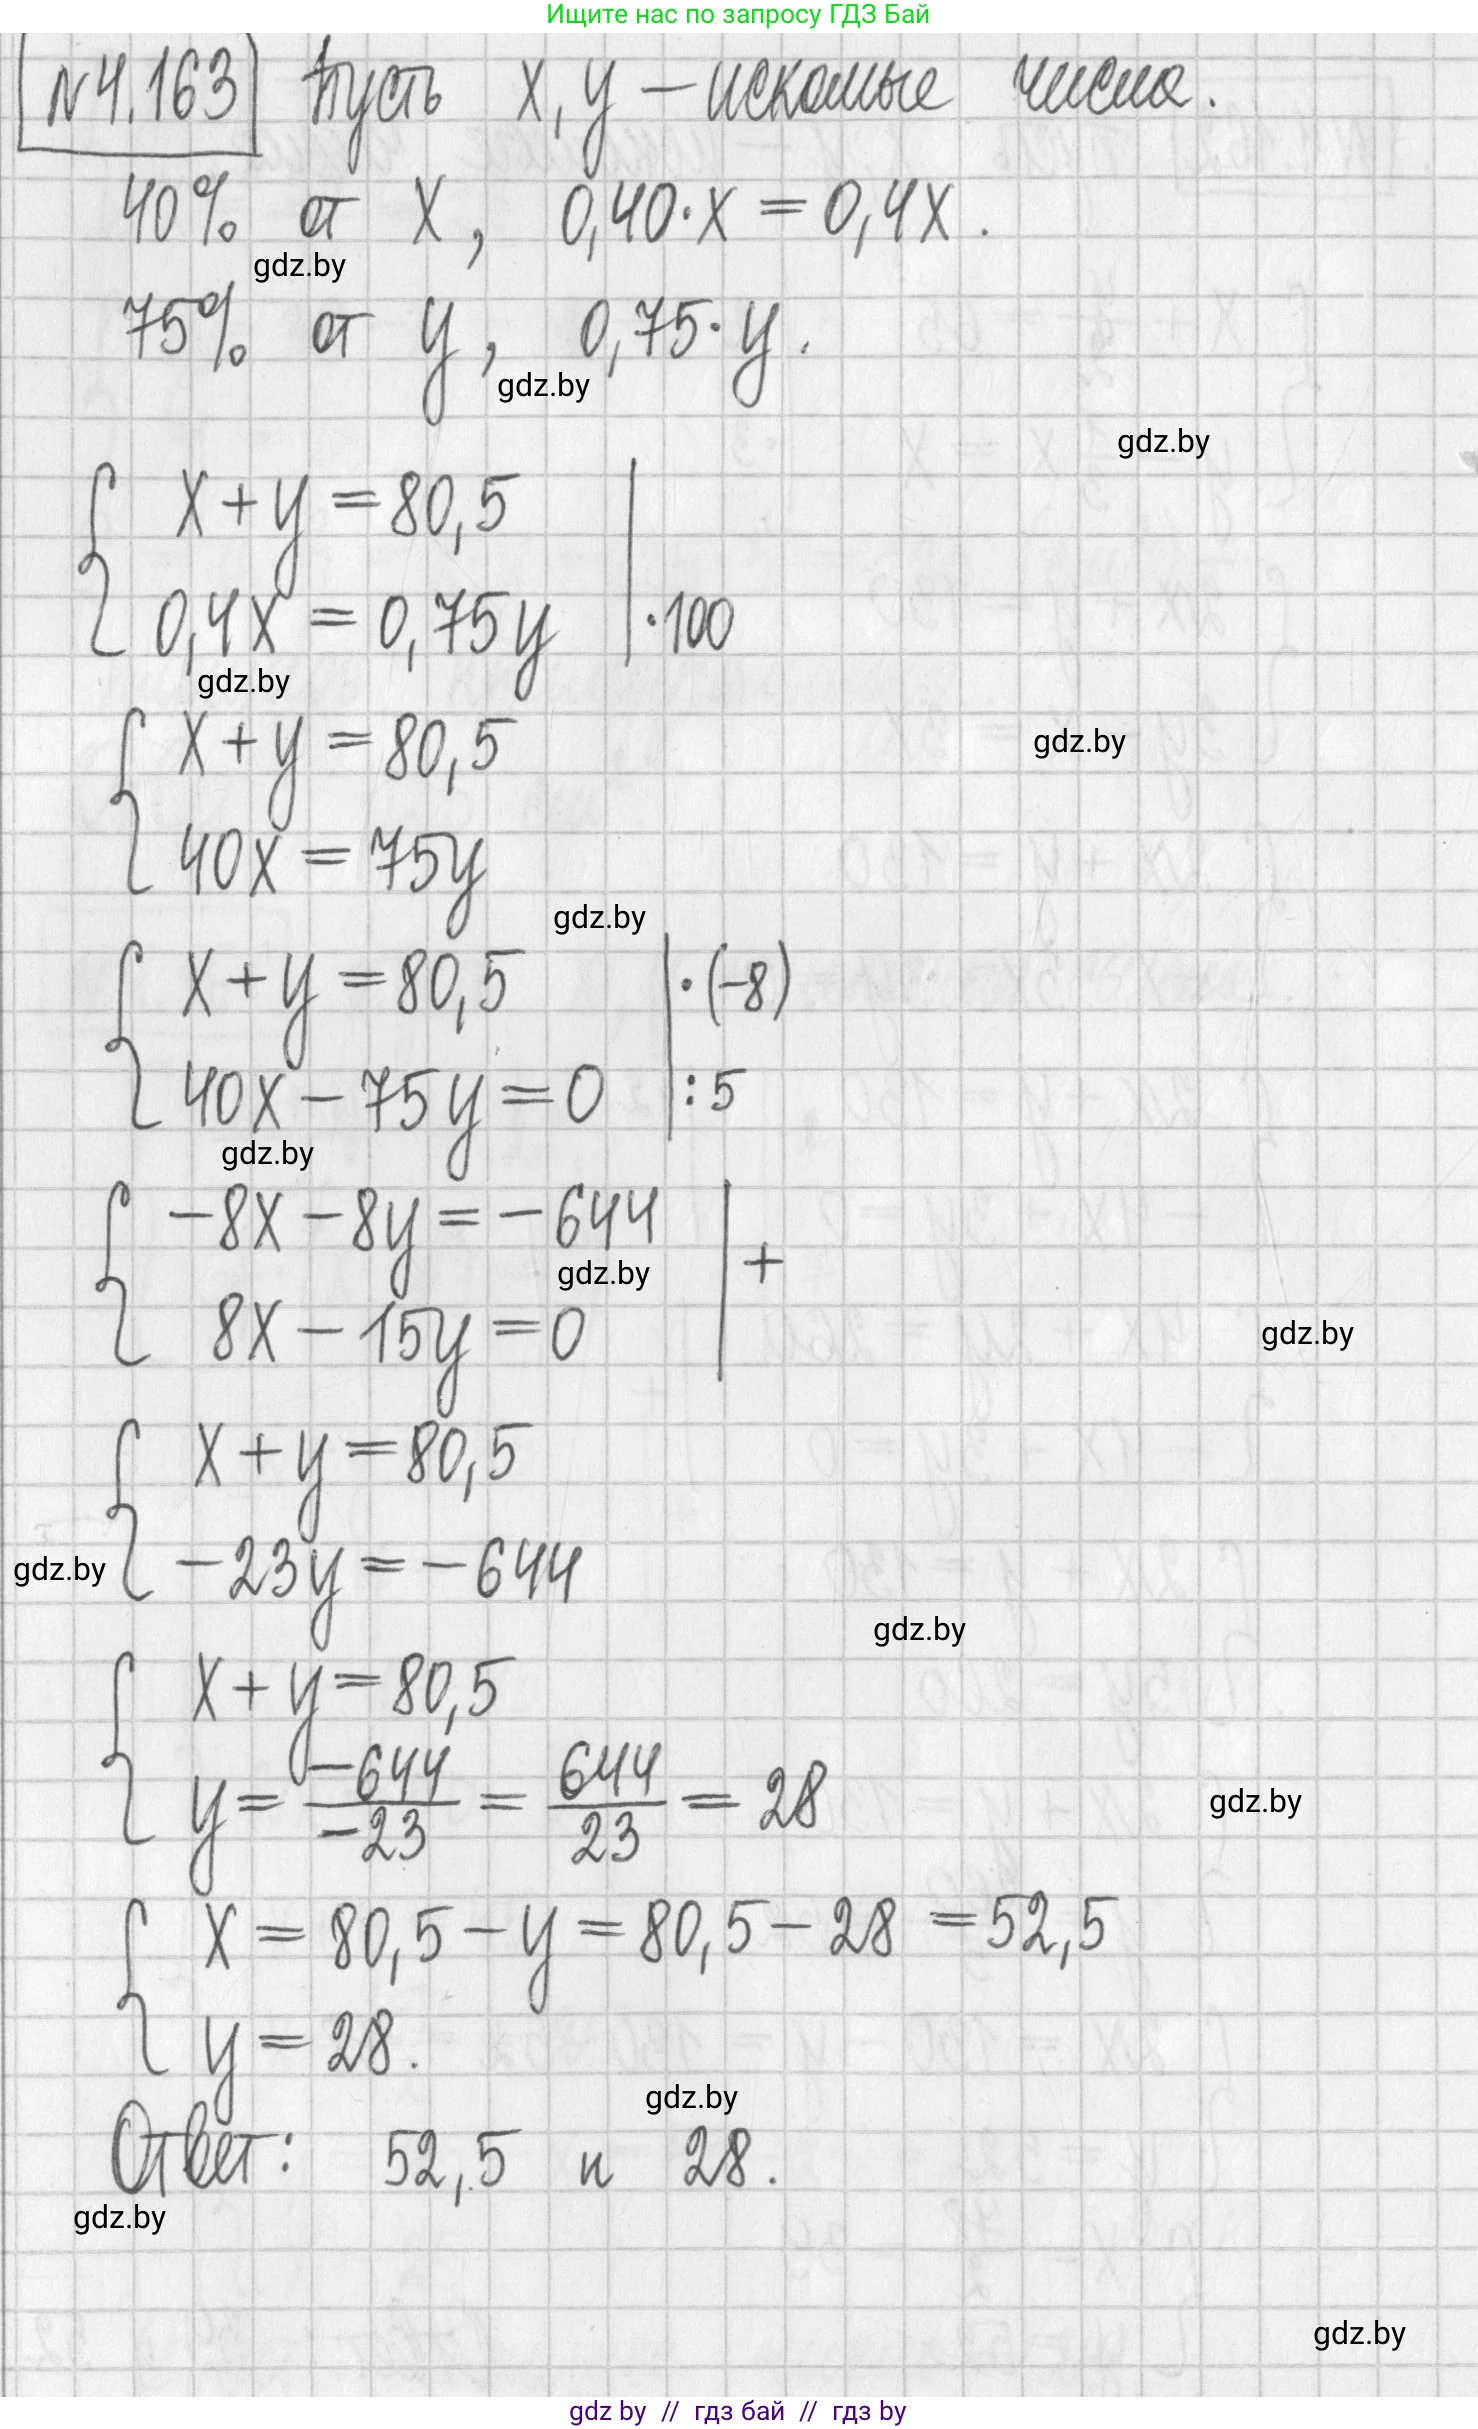 Ищите нас по запросу ГДЗ Бай
№4.163 Пусть x, y – искомые числа.
40% от x, 0,40·x = 0,4x.
gdz.by
75% от y, 0,75·y.
gdz.by
gdz.by
x + y = 80,5
0,4x = 0,75y |·100
gdz.by
x + y = 80,5
gdz.by
40x = 75y
gdz.by
x + y = 80,5 |·(-8)
40x – 75y = 0 |:5
gdz.by
-8x – 8y = -644 | +
gdz.by
8x – 15y = 0
gdz.by
x + y = 80,5
-23y = -644
gdz.by
gdz.by
x + y = 80,5
y = -644/-23 = 644/23 = 28
gdz.by
x = 80,5 – y = 80,5 – 28 = 52,5
y = 28.
gdz.by
Ответ: 52,5 и 28.
gdz.by
gdz.by
gdz by // гдз бай // гдз by